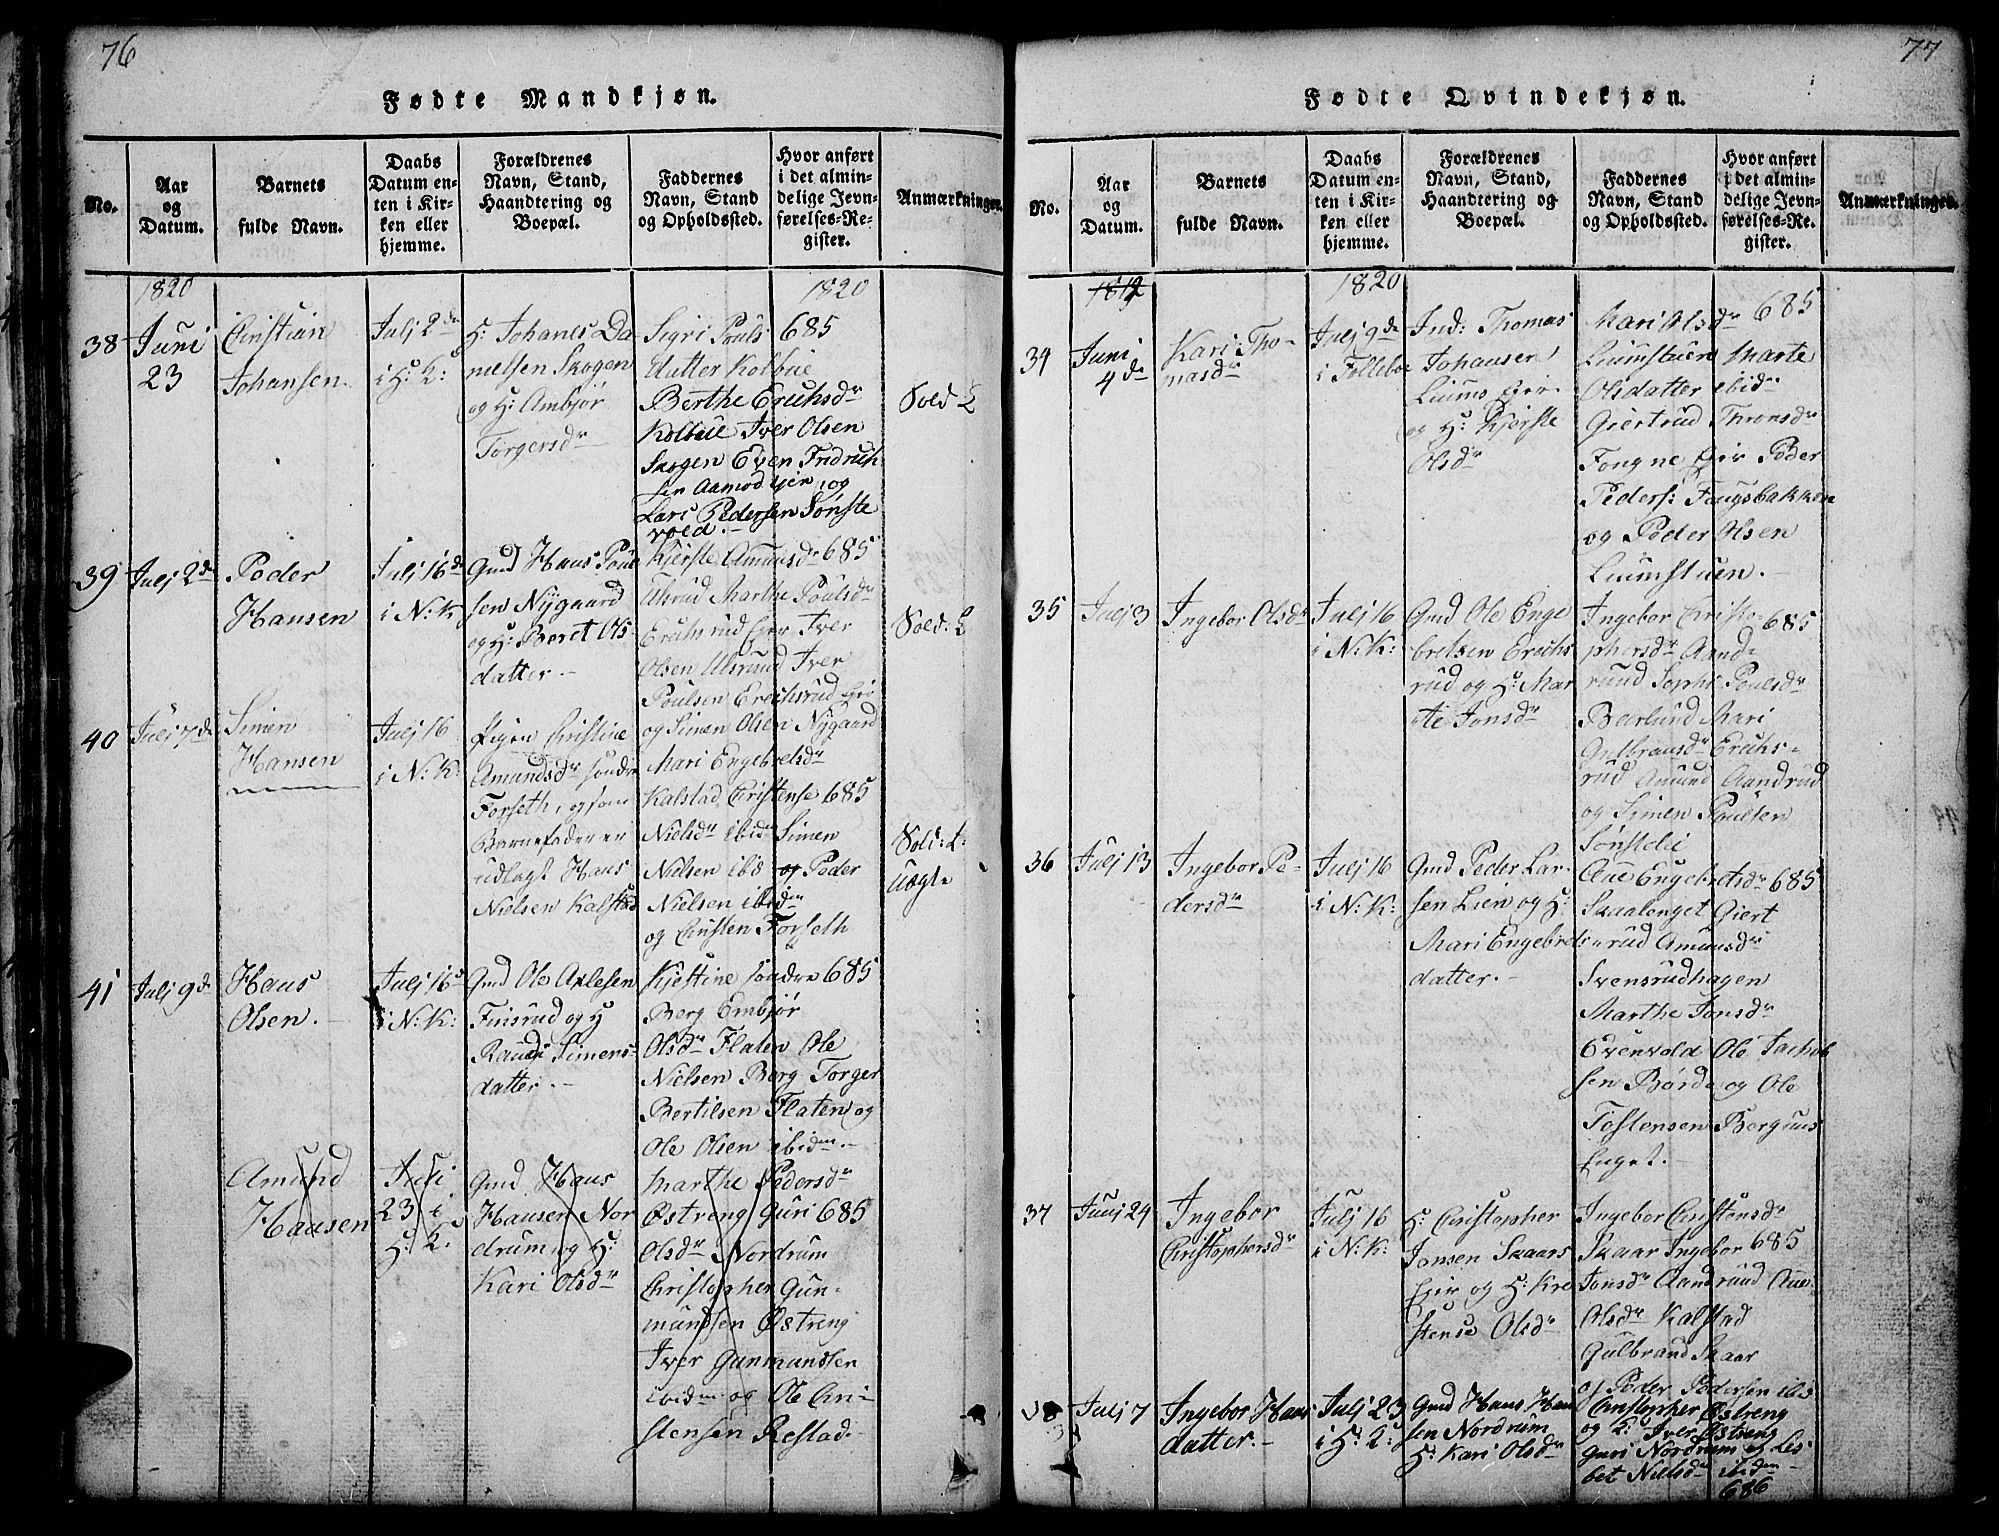 76
Fødte Mandkjøn.
No.
Aar
og
Datum.
Barnets
fulde Navn.
Daabs
Datum en-
ten i Kir-
ken eller
hjemme.
Forældrenes
Navn, Stand,
Haandtering og
Boepæl.
Faddernes
Navn, Stand
og Opholdssted.
Hvor anført
i det almin-
delige Jevn-
førelses-Re-
gister.
Anmærkninger.
1820
1820
38
Juni
23
Christian
Johansen.
Julj 2de
i H: K:
H: Johanes Da
nielsen Skogen
og H: Ambjør
Torgersdr
Sigri Pouls
datter Kolbue
Berthe Erichsdr
Kolbue Iver Olsen
Skogen Even Fridrich
sen Aamodtjen, og
Lars Pedersen Sønste
vold.
685
39
Julj 2de
Peder
Hansen
Julj 16de
i N: K
Gmd Hans Poul
sen Nygaard
og H: Beret Ols
datter.
Kjerste Amunsdr 685
Ulsrud Marthe Poulsdr
Erichsrud Eger Iver
Olsen Ulsrud Iver
Poulsen Erichsrud
og Simen Olsen Nygaard
Sold: L
40
Julj 7de
Simen
Hansen
Julj 16
i N: K:
Pigen Christine
Amundsdr søndre
Forseth, og som
Barnefader er
udlagt Hans
Nielsen Kalstad
Mari Engebretsdr
Kalstad Christense 685
Nielsdr ibidm Simen
Nielsen ibd og Peder
Nielsen ibidm
og Christen Forseth
Sold: L:
Uægte
41
Julj 9de
Hans
Olsen.
Julj 16
i N: K:
Gmd Ole Axlesen
Finsrud og H
Randi Simens-
datter.
Kjestine søndre 685
Berg Embjør
Olsdr Flaten Ole
Nielsen Berg Torger
Bertilsen Flaten og
Ole Olsen ibidm.
Amund
Hansen
Juli
23 i
H: K:
Gmd Hans
Hansen Nor
drum og H:
Kari Olsdr
Marthe Pedersdr
Østreng Guri 685
Olsdr Nordrum
Christopher Gun-
mundsen Østreng
Iver Gunmundsen
ibidm og Ole Chri-
stensen Restad.
77
Fødte Qvindekjøn.
No.
Aar
og
Datum.
Barnets
fulde Navn.
Daabs
Datum en-
ten i Kir-
ken eller
hjemme.
Forældrenes
Navn, Stand,
Haandtering og
Boepæl.
Faddernes
Navn, Stand
og Opholdssted.
Hvor anført
i det almin-
delige Jevn-
førelses-Re-
gister.
Anmærkninger.
1820
34
Juni
4de
Kari Tho-
masdr
Julj 9de
i Follebo
Ind: Thomas
Johansen
Liums Eier
og H: Kjerste
Olsdr
Mari Olsdr 685
Liumstuen Marte
Olsdatter ibidm
Giertrud Thronsdr
Fongne Eier Peder
Peders: Fougsbakken
og Peder Olsen
Liumstuen.
35
Julj 3
Ingebor Olsdr
Julj 16
i N: K:
Gmd Ole Enge
bretsen Erichs
rud og H: Mar
te Jonsdr
Ingebor Christo-
phersdr Aand- 685
rud Sophi Poulsdr
Baarlund Mari
Gulbransdr Erichs-
rud Amund Aandrud
og Simen Poulsen
36
Julj 13
Ingebor Pe-
dersdr
Julj 16
i N: K:
Gmd Peder Lar-
sen Lien og H:
Mari Engebrets
datter.
Ane Engebretsdr 685
Skaalenget Giert
rud Amunsdr
Svensrudhagen
Marthe Jonsdr
Evenvold Ole Jachob
sen Børde og Ole
Tostensen Berguns
Enget.
37
Junj 24
Ingebor
Christophersdr
Julj 16
i N: K:
H: Christopher
Jonsen Skaars
Eier og H: Kre
stense Olsdr
Ingebor Christensdr
Skaar Ingebor 685
Jonsdr Aandrud Ane
Olsdr Kalstad
Gulbrand Skaar
og Peder Pedersen ibid
38
Julj 7
Ingebor Hans
datter.
Julj 23
i H: K:
Gmd Hans Han
sen Nordrum
H: Kari Olsdr
Christopher Østreng
og K: Iver Østreng
Guri Nordrum og Lis
bet Nielsdr ibidem
686